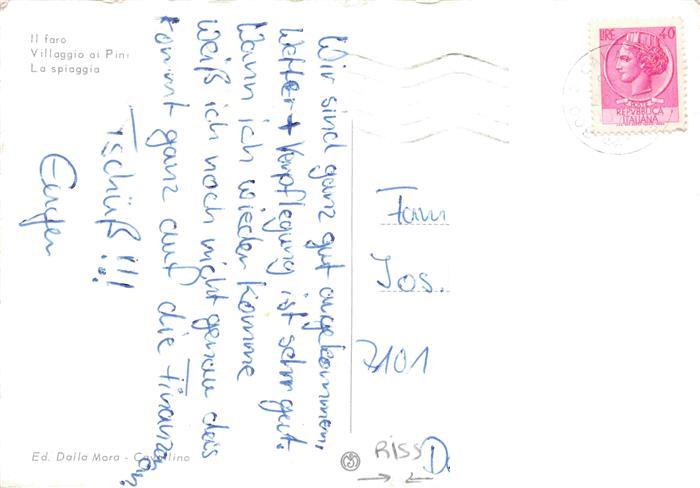 Il faro
Villaggio ai Pini
La spiaggia
Wir sind ganz gut angekommen,
Wetter + Verpflegung ist sehr gut.
Wann ich wieder komme
weiß ich noch nicht genau das
kommt ganz auf die Finanzen
an.
Tschüß!!!
Eugen
LIRE 40
POSTE
REPUBBLICA
ITALIANA
Fam
Jos.
7101
D.
RISS
Ed. Dalla Mora - Cavallino